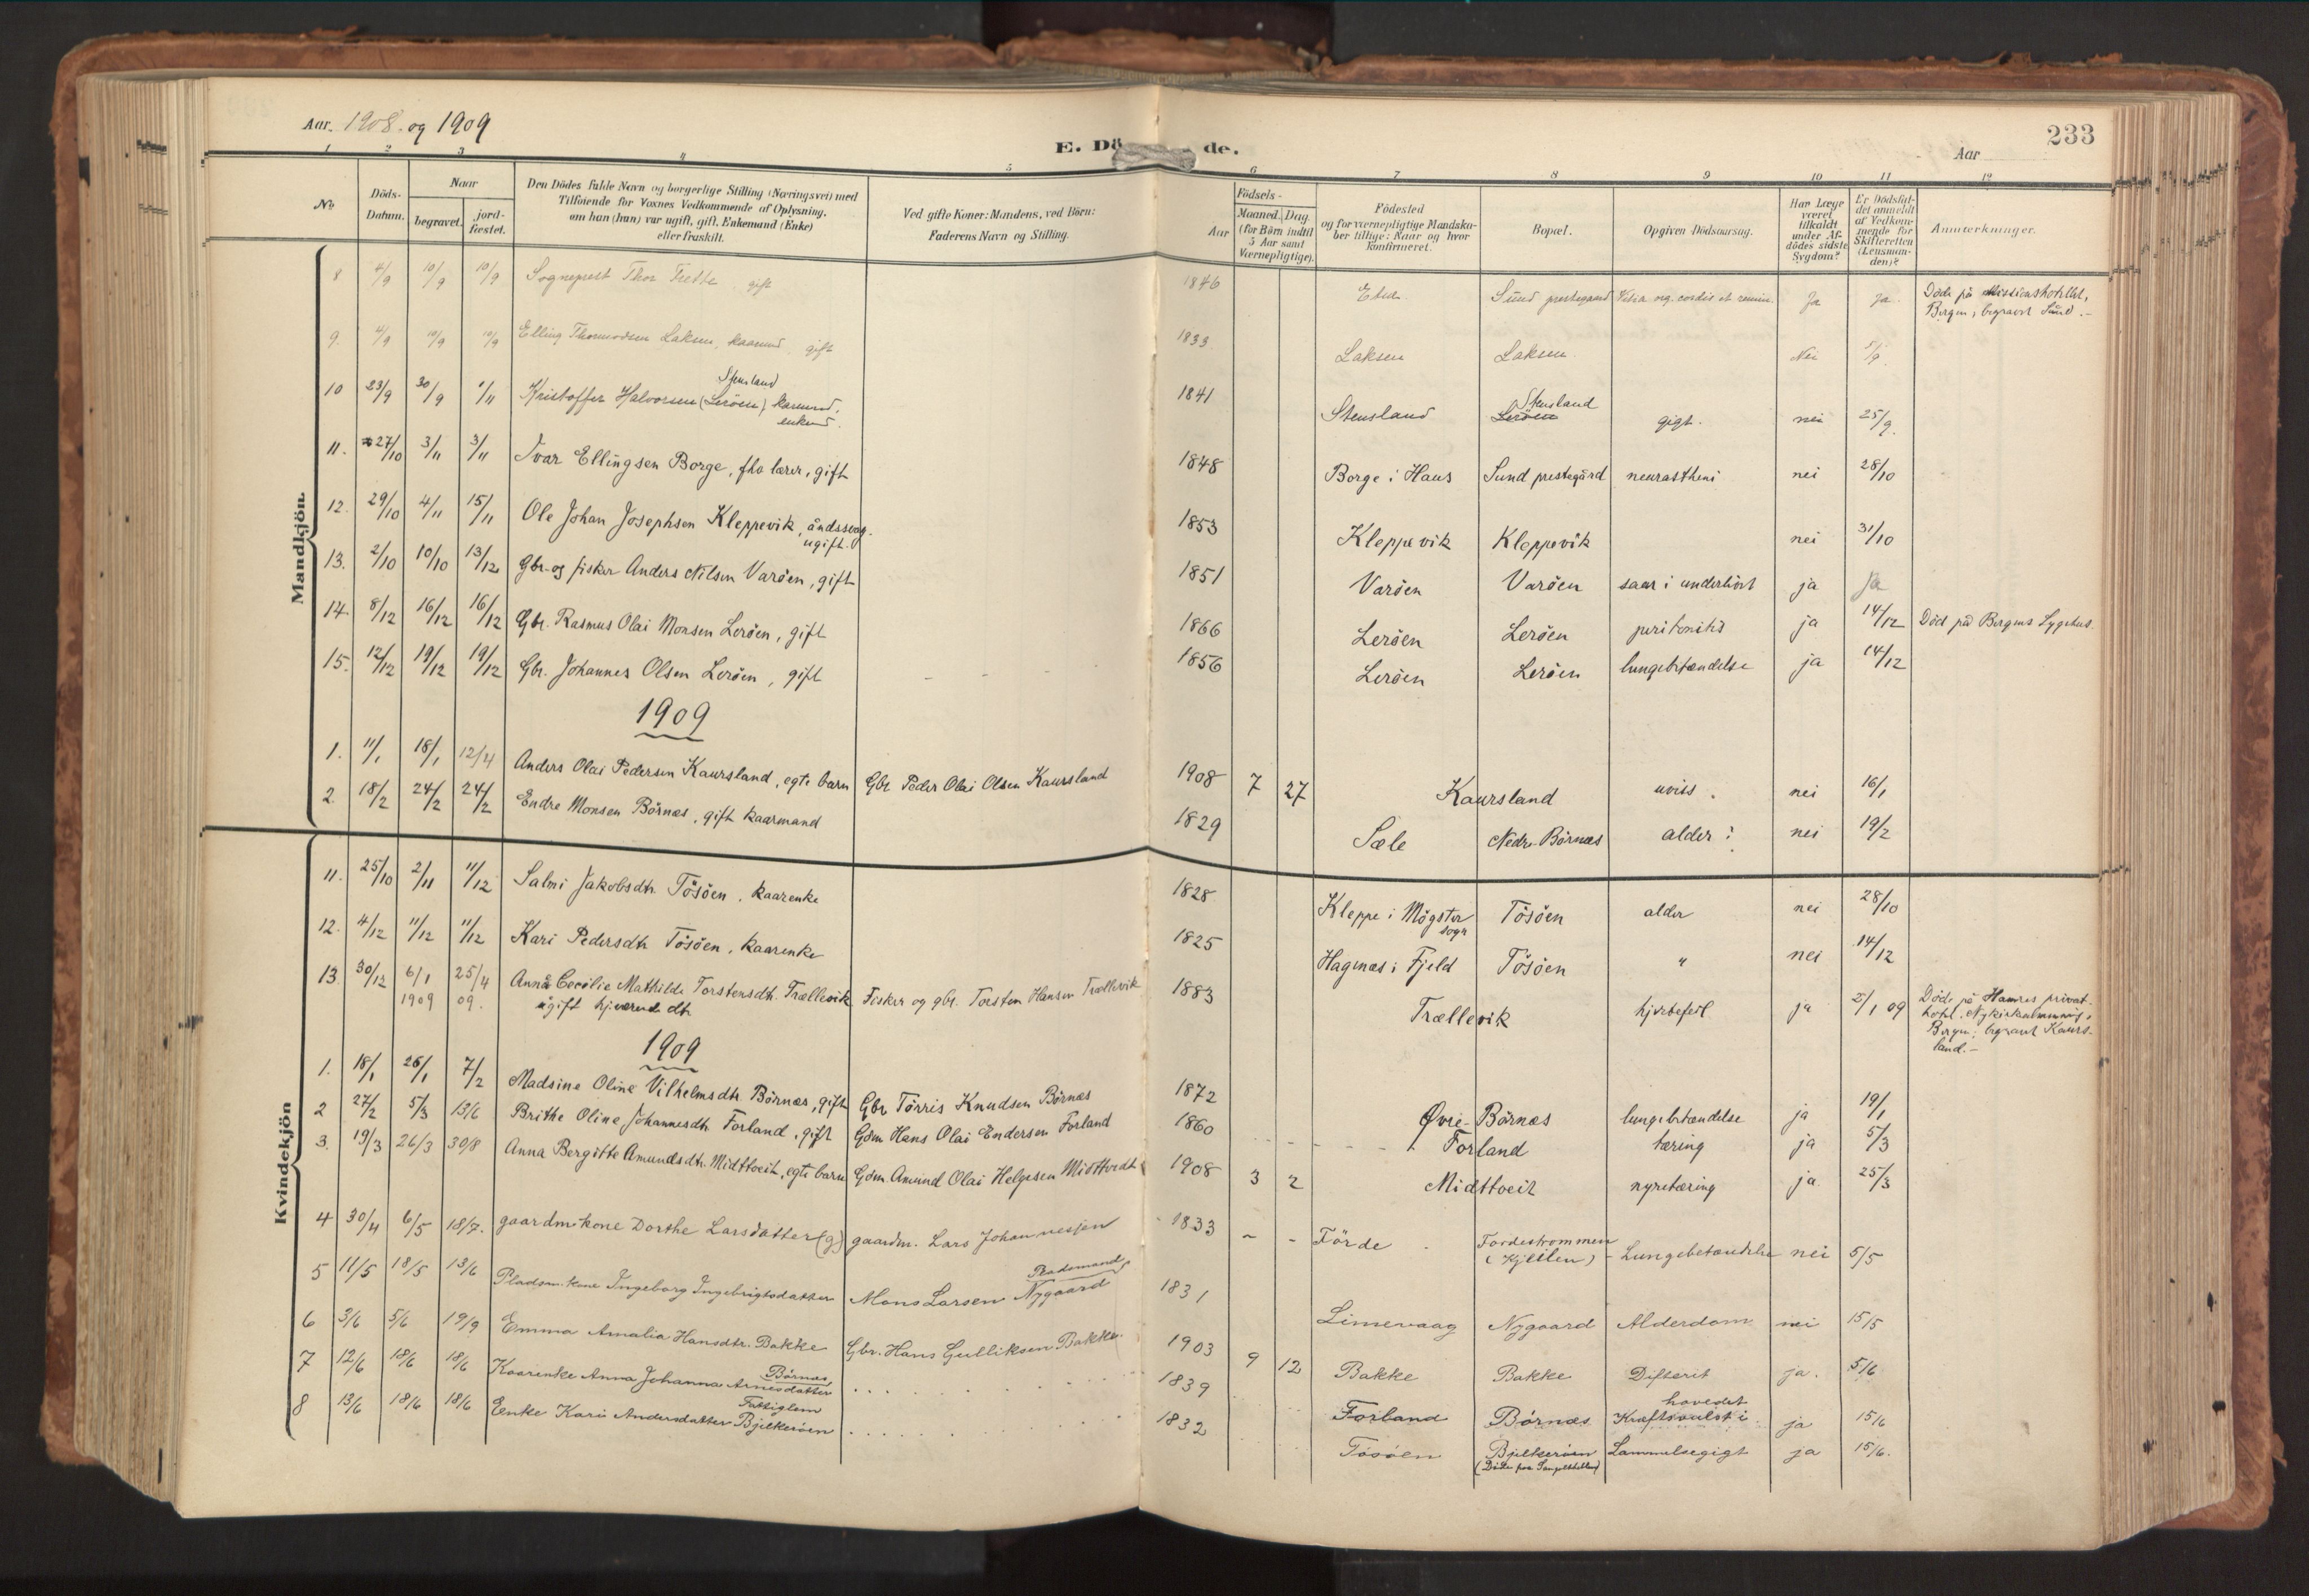 Aar. 1908. og 1909
E. Dö de.
Aar
233
1 2 3 4 5 6 7 8 9 10 11 12
No
Döds-Datum.
Naar
begravet.
jord-fæstet.
Den Dödes fulde Navn og borgerlige Stilling (Næringsvei) med
Tilföiende for Voxnes Vedkommende af Oplysning,
om han (hun) var ugift, gift, Enkemand (Enke)
eller fraskilt.
Ved gifte Koner: Mandens, ved Börn:
Faderens Navn og Stilling.
Födsels-
Aar
Maaned. Dag
(for Börn indtil
5 Aar samt
Værnepligtige).
Födested
og for værnepligtige Mandska-
ber tillige: Naar og hvor
konfirmeret.
Bopæl.
Opgiven Dödsaarsag.
Har Læge
været
tilkaldt
under Af-
dödes sidste
Sygdom?
Er Dödsfal-
det anmeldt
af Vedkom-
mende for
Skifteretten
(Lensman-
den)?
Anmærkninger.
Mandkjön.
8 4/9 10/9 10/9 Sogneprest Thor Frette, gift 1846 Etne Sund prestegaard Ja Ja. Döde på Missionshotellet, Bergen, begravet Sund.-
9. 4/9 10/9 10/9 Elling Thormodsen Laksen, kaarmd, gift 1833 Laksen Laksen Nei 5/9
10 23/9 30/9 1/11 Kristoffer Halvorsen (Leröen) Stensland kaarmd. enkemd. 1841 Stensland Leröen Stensland gigt. nei 25/9.
11. 27/10 3/11 3/11 Ivar Ellingsen Borge, fhv lærer, gift 1848 Borge i Haus Sund prestegård neurastheni nei 28/10
12. 29/10 4/11 15/11 Ole Johan Josephsen Kleppevik, åndssvag. ugift. 1853 Kleppevik Kleppevik nei 31/10
13. 2/10 10/10 13/12 Gbr. og fisker Anders Nilsen Varöen, gift 1851 Varöen Varöen saar i underlivet ja ja
14. 8/12 16/12 16/12 Gbr. Rasmus Olai Monsen Leröen, gift 1866 Leröen Leröen peritonitis ja 14/12 Död på Bergens Sygehus.
15. 12/12 19/12 19/12 Gbr. Johannes Olsen Leröen, gift - - - 1856 Leröen Leröen lungebetændelse ja 14/12
1909
1. 11/1 18/1 12/4 Anders Olai Pedersen Kaursland, egte barn Gbr Peder Olai Olsen Kaursland 1908 7 27 Kaursland uviss. nei 16/1
2. 18/2 24/2 24/2 Endre Monsen Börnes, gift kaarmand 1829 Sæle Nedre-Börnæs alder? nei 19/2
Kvindekjön
11. 25/10 2/11 11/12 Salmi Jakobsdtr. Tösöen, kaarenke 1828 Kleppe i Mögster sogn Tösöen alder nei 28/10
12. 4/12 11/12 11/12 Kari Pedersdtr Tösöen, kaarenke 1825 Hagenæs i Fjeld Tösöen " nei 14/12
13. 30/12 6/1 1909 25/4 09. Anna Cecilie Mathilde Torstensdtr. Trællevik ugift hjværende dtr Fisker og gbr. Torsten Hansen Trællevik 1883 Trællevik hjertefeil ja 2/1 09 Döde på Hamres privat-hotel, Nykirkealmenning, Bergen; begravet Kaurs-land.-
1909
1. 18/1 26/1 7/2 Madsine Oline Vilhelmsdtr Börnæs, gift Gbr Törris Knudsen Börnæs 1872 Øvre-Börnæs lungebetændelse ja 19/1
2 27/2 5/3 13/6 Brithe Oline Johannesdtr Forland, gift Gdm Hans Olai Endersen Forland 1860 Forland tæring ja 5/3
3. 19/3 26/3 30/8 Anna Bergitte Amundsdtr. Midttveit, egte barn Gdm. Amund Olai Helgesen Midttveit 1908 3 2 Midttveit nyretæring ja 25/3
4 30/4 6/5 18/7. gaardm. kone Dorthe Larsdatter (g) gaardm. Lars Johannesjen 1833 - - Förde Fordestrommen (Kjeilen) Lungebetændelse nei 5/5
5 11/5 18/5 13/6 Pladsm. kone Ingeborg Ingebrigtsdatter Mons Larsen Nygaard Pladsmand 1831 Limevaag Nygaard Alderdom nei 15/5
6 3/6 5/6 19/9 Emma Amalia Hansdtr. Bakke Gbr. Hans Gulliksen Bakke. 1903 9 12 Bakke Bakke Difterit ja. 5/6
7 12/6 18/6 18/6 Kaarenke Anna Johanna Arnesdatter Börnæs 1839 Forland Börnæs Kræftsvulst i hovedet ja 15/6
8 13/6 18/6 18/6 Enke Kari Andersdatter Bjelkeröen Fattiglem 1832 Tösöen Bjelkeröen Lammelsegigt ja 15/6.